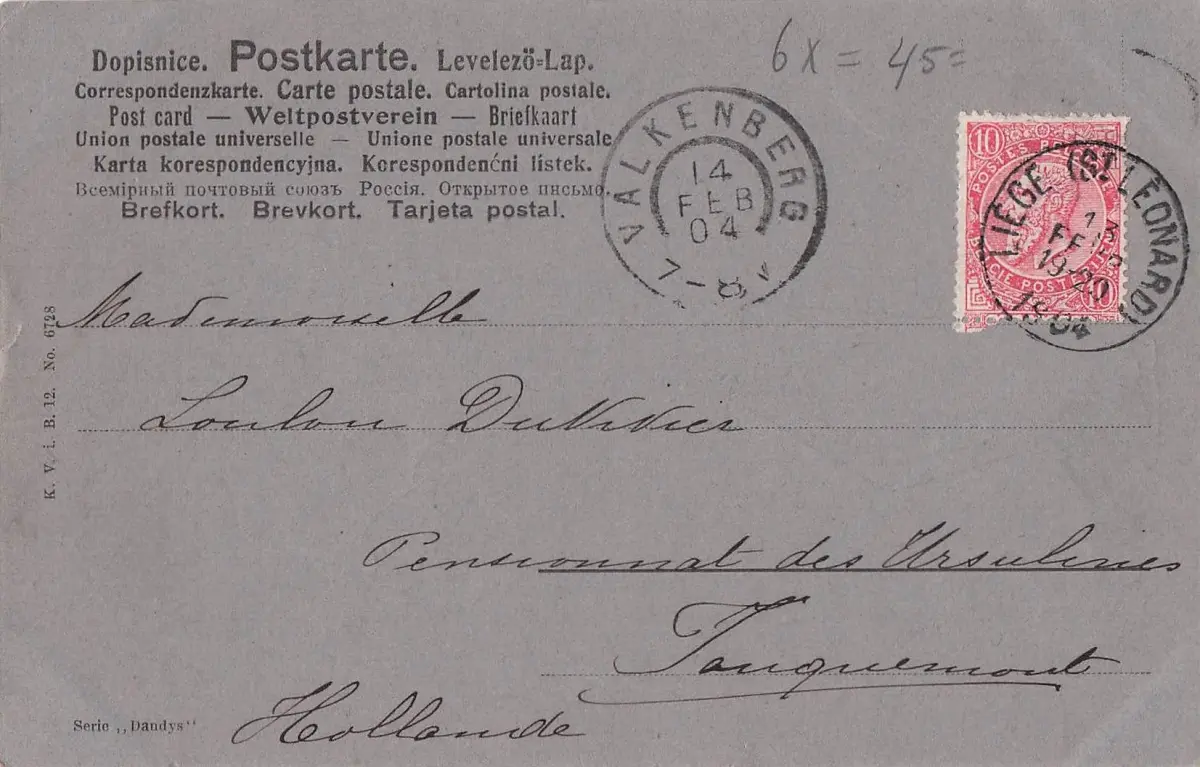 Dopisnice. Postkarte. Levelező=Lap.
Correspondenzkarte. Carte postale. Cartolina postale.
Post card — Weltpostverein — Briefkaart
Union postale universelle — Unione postale universale
Karta korespondencyjna. Korespondenćni lístek.
Всемірный почтовый союзъ Россія. Открытое письмо.
Brefkort. Brevkort. Tarjeta postal.
6 x = 45=
VALKENBERG
14
FEB
04
7-8 V
10
10
LIÉGE (ST. LÉONARD)
13
FEVR
19-20
1904
Mademoiselle
Loulou
Pensionnat des Ursulines
Fauquemont
Hollande
K. V. i. B. 12. No. 6728
Serie „Dandys“